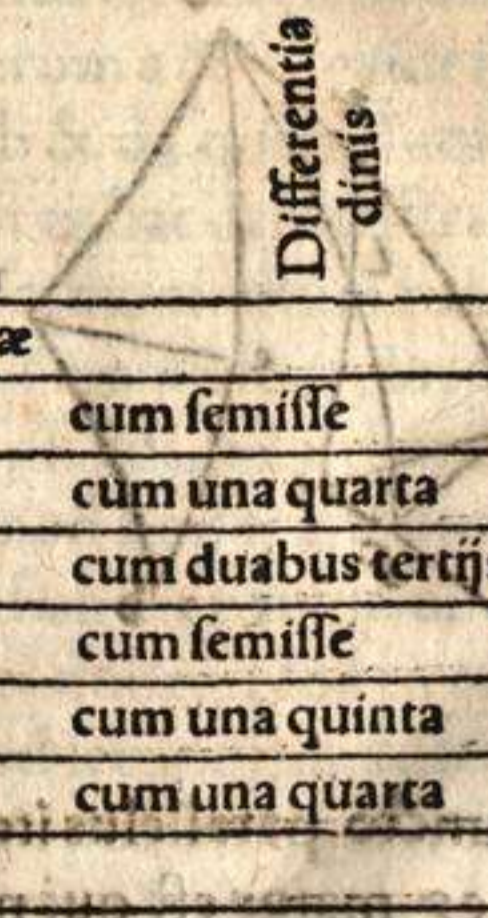 Differentia
dinis
æ
cum ſemiſſe
cum una quarta
cum duabus tertijs
cum ſemiſſe
cum una quinta
cum una quarta